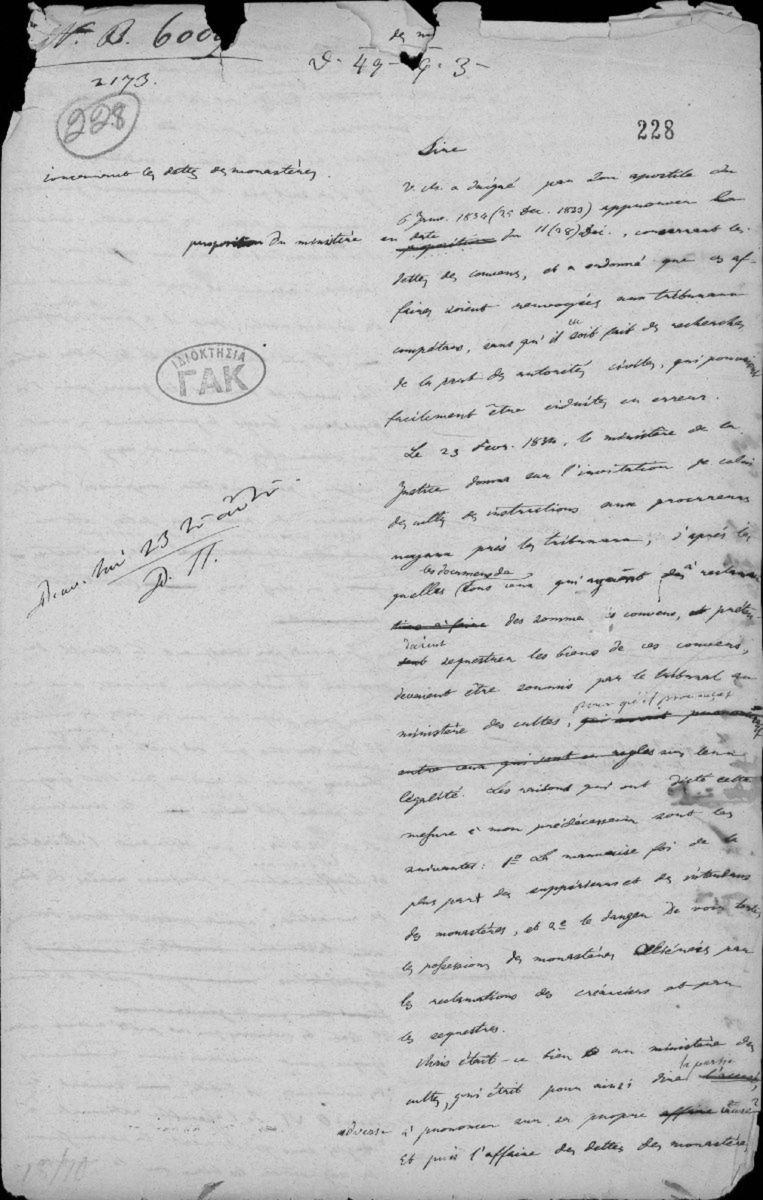 No. B. 600
2173.
228
D. 49 - 9. 3 -
228
Sire
concernant les dettes des monastères.
V. M. a daigné par Son apostile du
6 Janv. 1834 (25 Dec. 1833) approuver la
proposition du ministère en date du 11 (23) Déc., concernant les
dettes des couvens, et a ordonné que ces af-
faires soient renvoyées aux tribunaux
compétens, sans qu'il en soit fait des recherches
de la part des autorités civiles, qui pouvaient
facilement être induites en erreur.
ΙΔΙΟΚΤΗΣΙΑ
ΓΑΚ
Le 23 Fevr. 1834, le ministère de la
Justice donna sur l'invitation de celui
des cultes des instructions aux procureurs
royaux près les tribunaux, d'après les
quelles les documens de tous ceux qui ayant des reclama
tions à faire des sommes des couvens, et préten-
dent sequestrer les biens de ces couvens,
devaient être soumis par le tribunal au
ministère des cultes, pour qu'il prononçat
entre ceux qui sont en regles sur leur
légalité. Les raisons qui ont dicté cette
mesure à mon prédécesseur sont les
suivantes: 1º La mauvaise foi de la
plus part des suppérieurs et des intendans
des monastères, et 2º le danger de voir toutes
les possessions des monastères aliénées par
les reclamations des créanciers et par
les sequestres.
Mais était-ce bien au ministère des
cultes, qui était pour ainsi dire la partie
adverse à prononcer sur sa propre affaire cause?
Et puis l'affaire des dettes des monastères
23